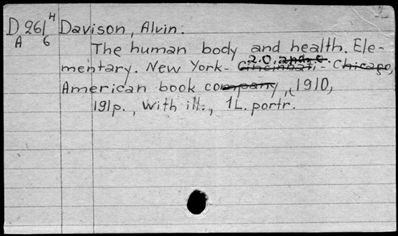 D 261⁴ Davison, Alvin.
A 6 The human body and health. Ele-
mentary. New York - Cincinnati - Chicago,
American book company, 1910,
191p., with ill., 1L. portr.